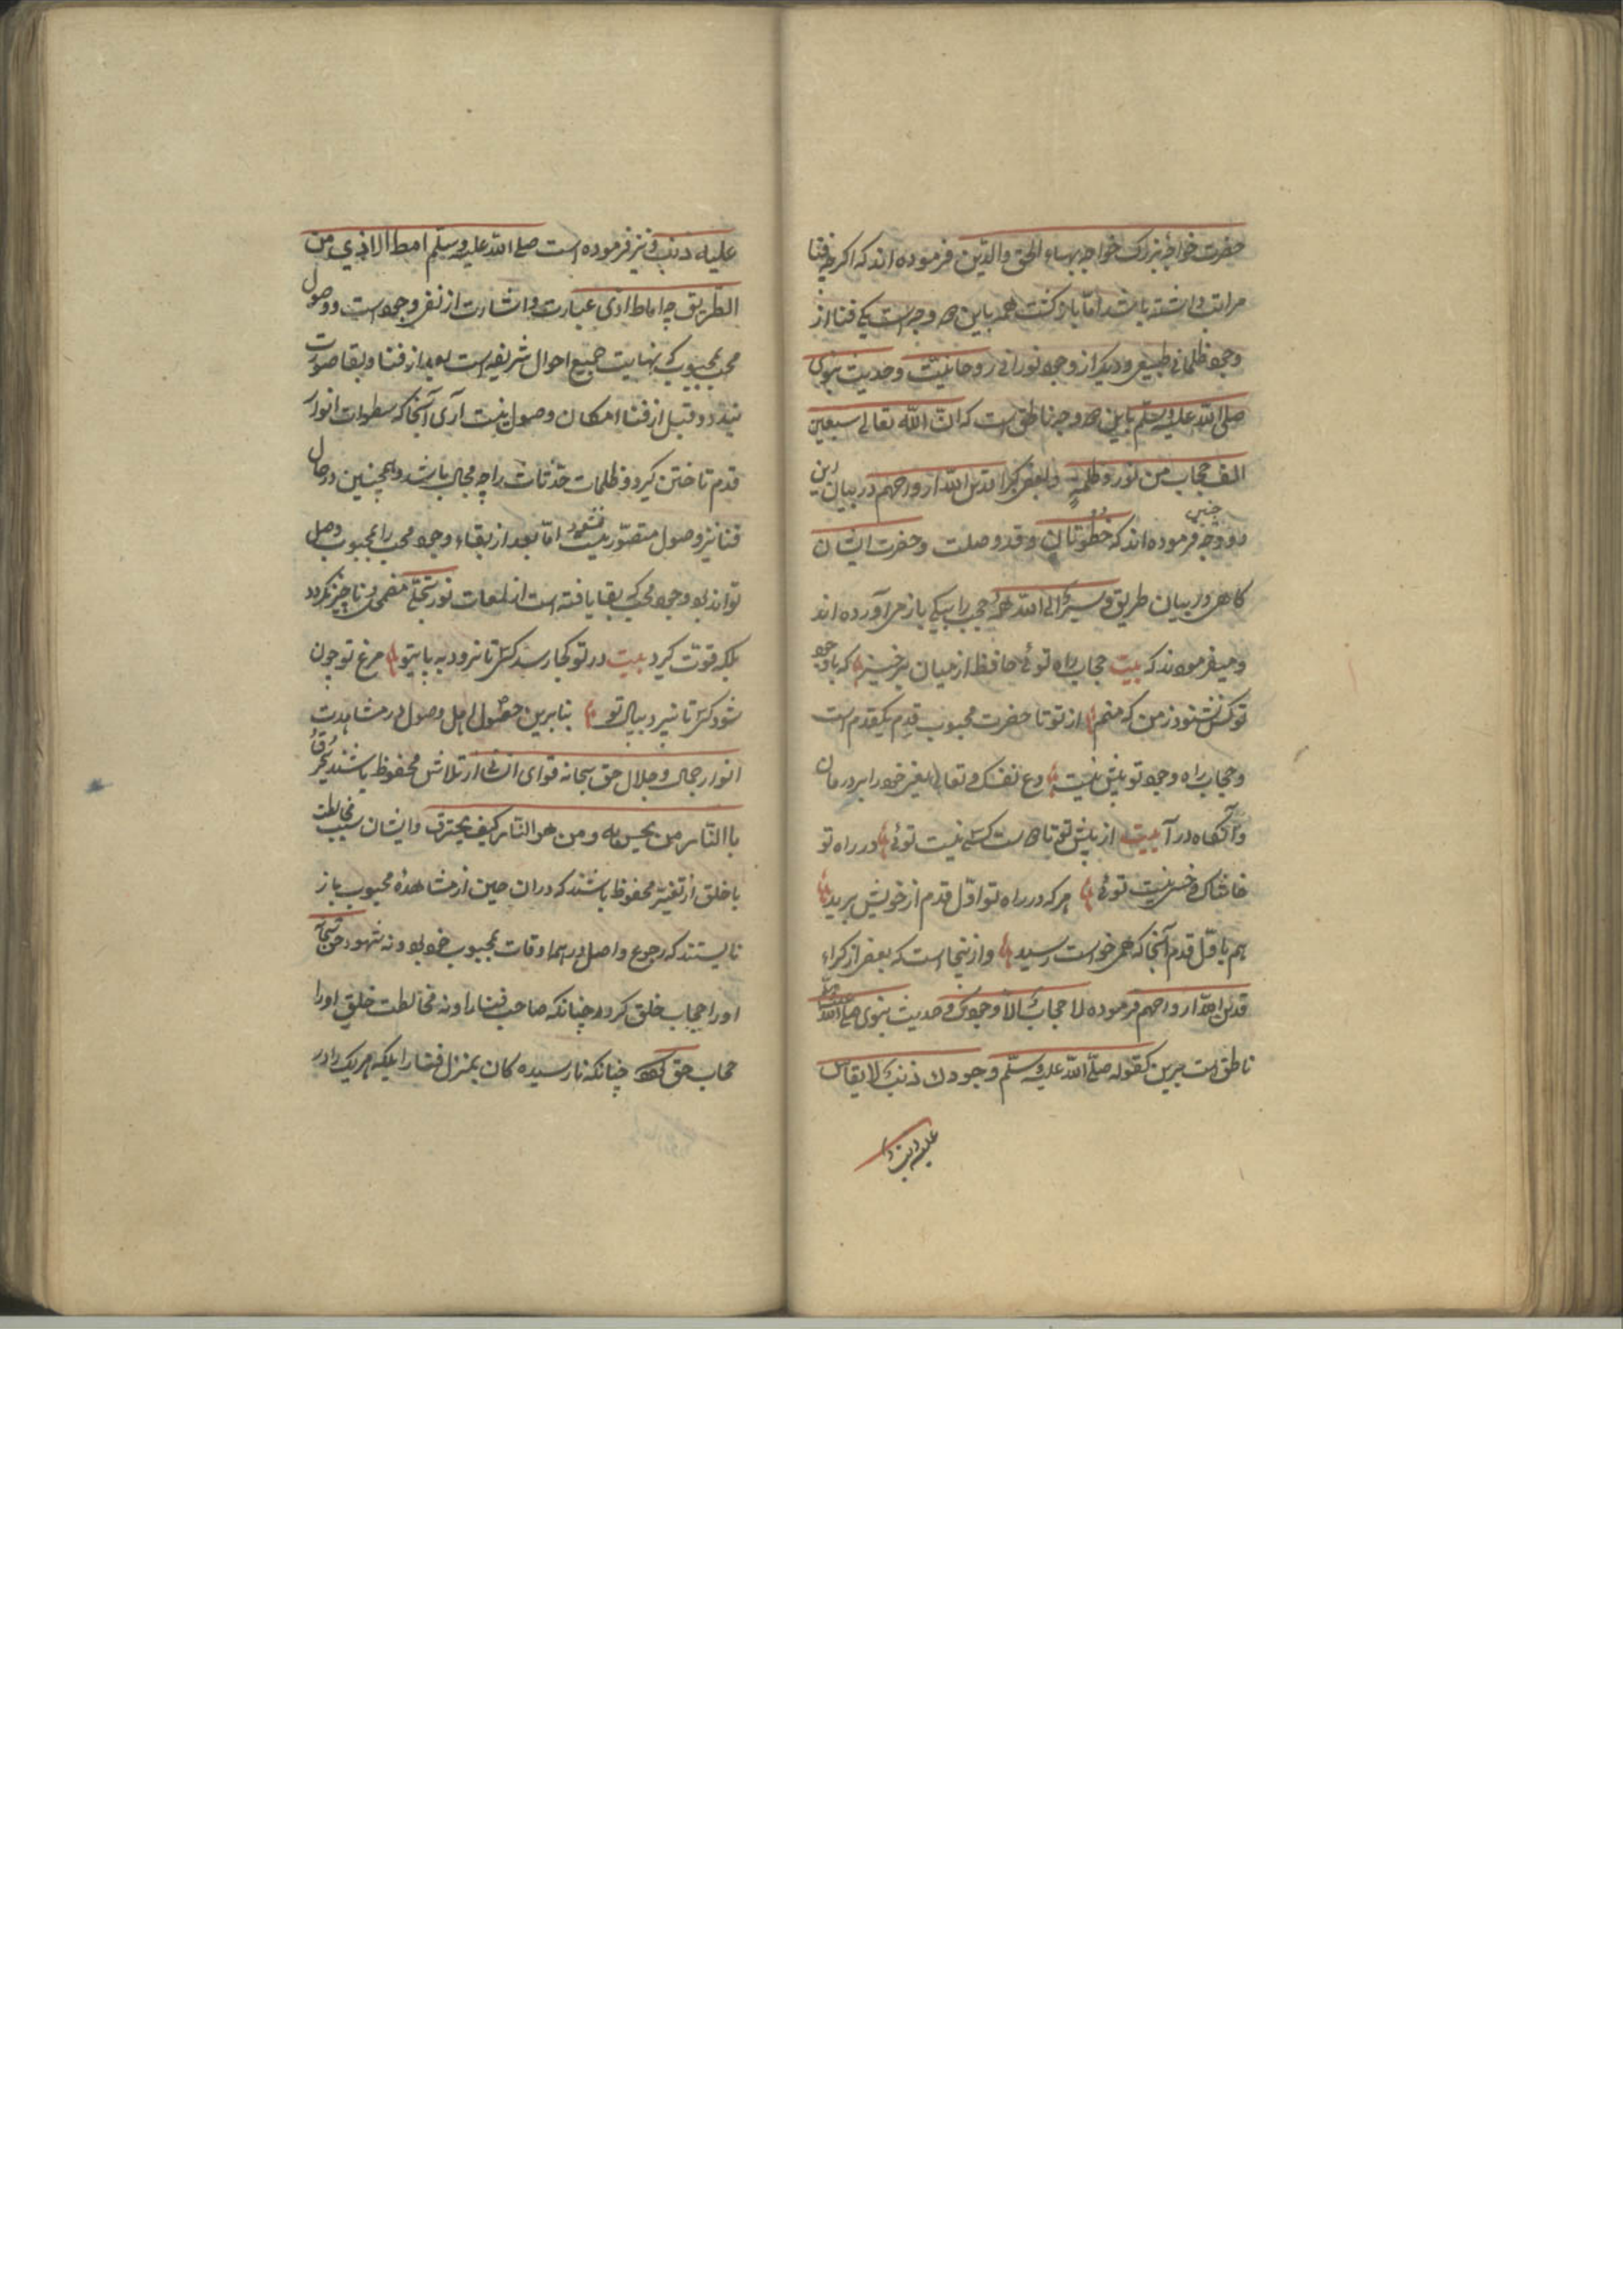 حضرت خواجهٔ بزرک خواجه بهاء الحق والدین فرموده اند که اکرچه فنا
مراتب داشته باشد امّا بازکشت همه باین دو وجه است یکی فنا از
وجود ظلمانی طبیعی و دیکر از وجود نورانی روحانیّت و حدیث نبوی
صلی الله علیه وسلّم باین دو وجه ناطق است که انّ الله تعالی سبعین
الف حجاب من نور و ظلمة و بعض کبرا قدس الله ارواحهم در بیان این
دو وجه چنین فرموده اند که خطوتان وقد وصلت و حضرت ایشان
کاهی در بیان طریق سیر الی الله همه حجب را بیکی باز می آورده اند
و میفرمودند که بیت حجاب راه توئی حافظ از میان برخیز که با وجود
تو کس نشنود ز من که منم از تو تا حضرت محبوب قدم یکقدم است
و حجاب راه وجود تو بیش نیست دع نفسک و تعال یعنی خود را بر در مان
و آنکاه در آ بیت از پیش تو تا دوست کسی نیست توئی در راه تو
خاشاک و خسی نیست توئی هر که در راه تو اوّل قدم از خویش برید
هم باوّل قدم آنجا که همی خواست رسید و از ینجا است که بعض از کبراء
قدس الله ارواحهم فرموده لا حجاب الا وجودک و حدیث نبوی صلی الله علیه وسلم
ناطق است برین کقوله صلّی الله علیه وسلّم وجودک ذنب لا یقاس
علیه ذنب
علیه ذنب و نیز فرموده است صلی الله علیه وسلّم امط الاذی من
الطریق چه اماطه اذی عبارت و اشارت از نفی وجود است و وصول
محب بمحبوب که نهایت جمیع احوال شریفه است بعد از فنا و بقا صورت
بندد و قبل از فنا امکان وصول نیست آری آنجا که سطوات انوار
قدم تاختن کیرد ظلمات حدثان را چه مجال باشد و همچنین در حال
فنا نیز وصول متصوّر نیست امّا بعد از بقاء وجود محب را بمحبوب وصل
تواند بود وجود محب که بقا یافته است از لمعات نور تجلی مضمحل و ناچیز نکردد
بلکه قوّت کیرد بیت در تو کجا رسد کسی تا نرود به پای تو مرغ تو چون
شود کسی تا نپرد ببال تو بنابرین حصول اهل وصول در مشاهدت
انوار جمال و جلال حق سبحانه قوای ایشان از تلاشی محفوظ باشند یحترق
با النّار من یحسّ به و من هو النّار کیف یحترق و ایشان بسبب مخالطت
با خلق از تغییر محفوظ باشند که در ان حین از مشاهدهٔ محبوب باز
نایستند که رجوع واصل در همه اوقات بمحبوب خود بود نه شهود حق سبحانه
او را حجاب خلق کردد چنانکه صاحب فنا را و نه مخالطت خلق او را
حجاب حق کردد چنانکه نارسیده کان بمنزل فنا را بلکه هر یک را در